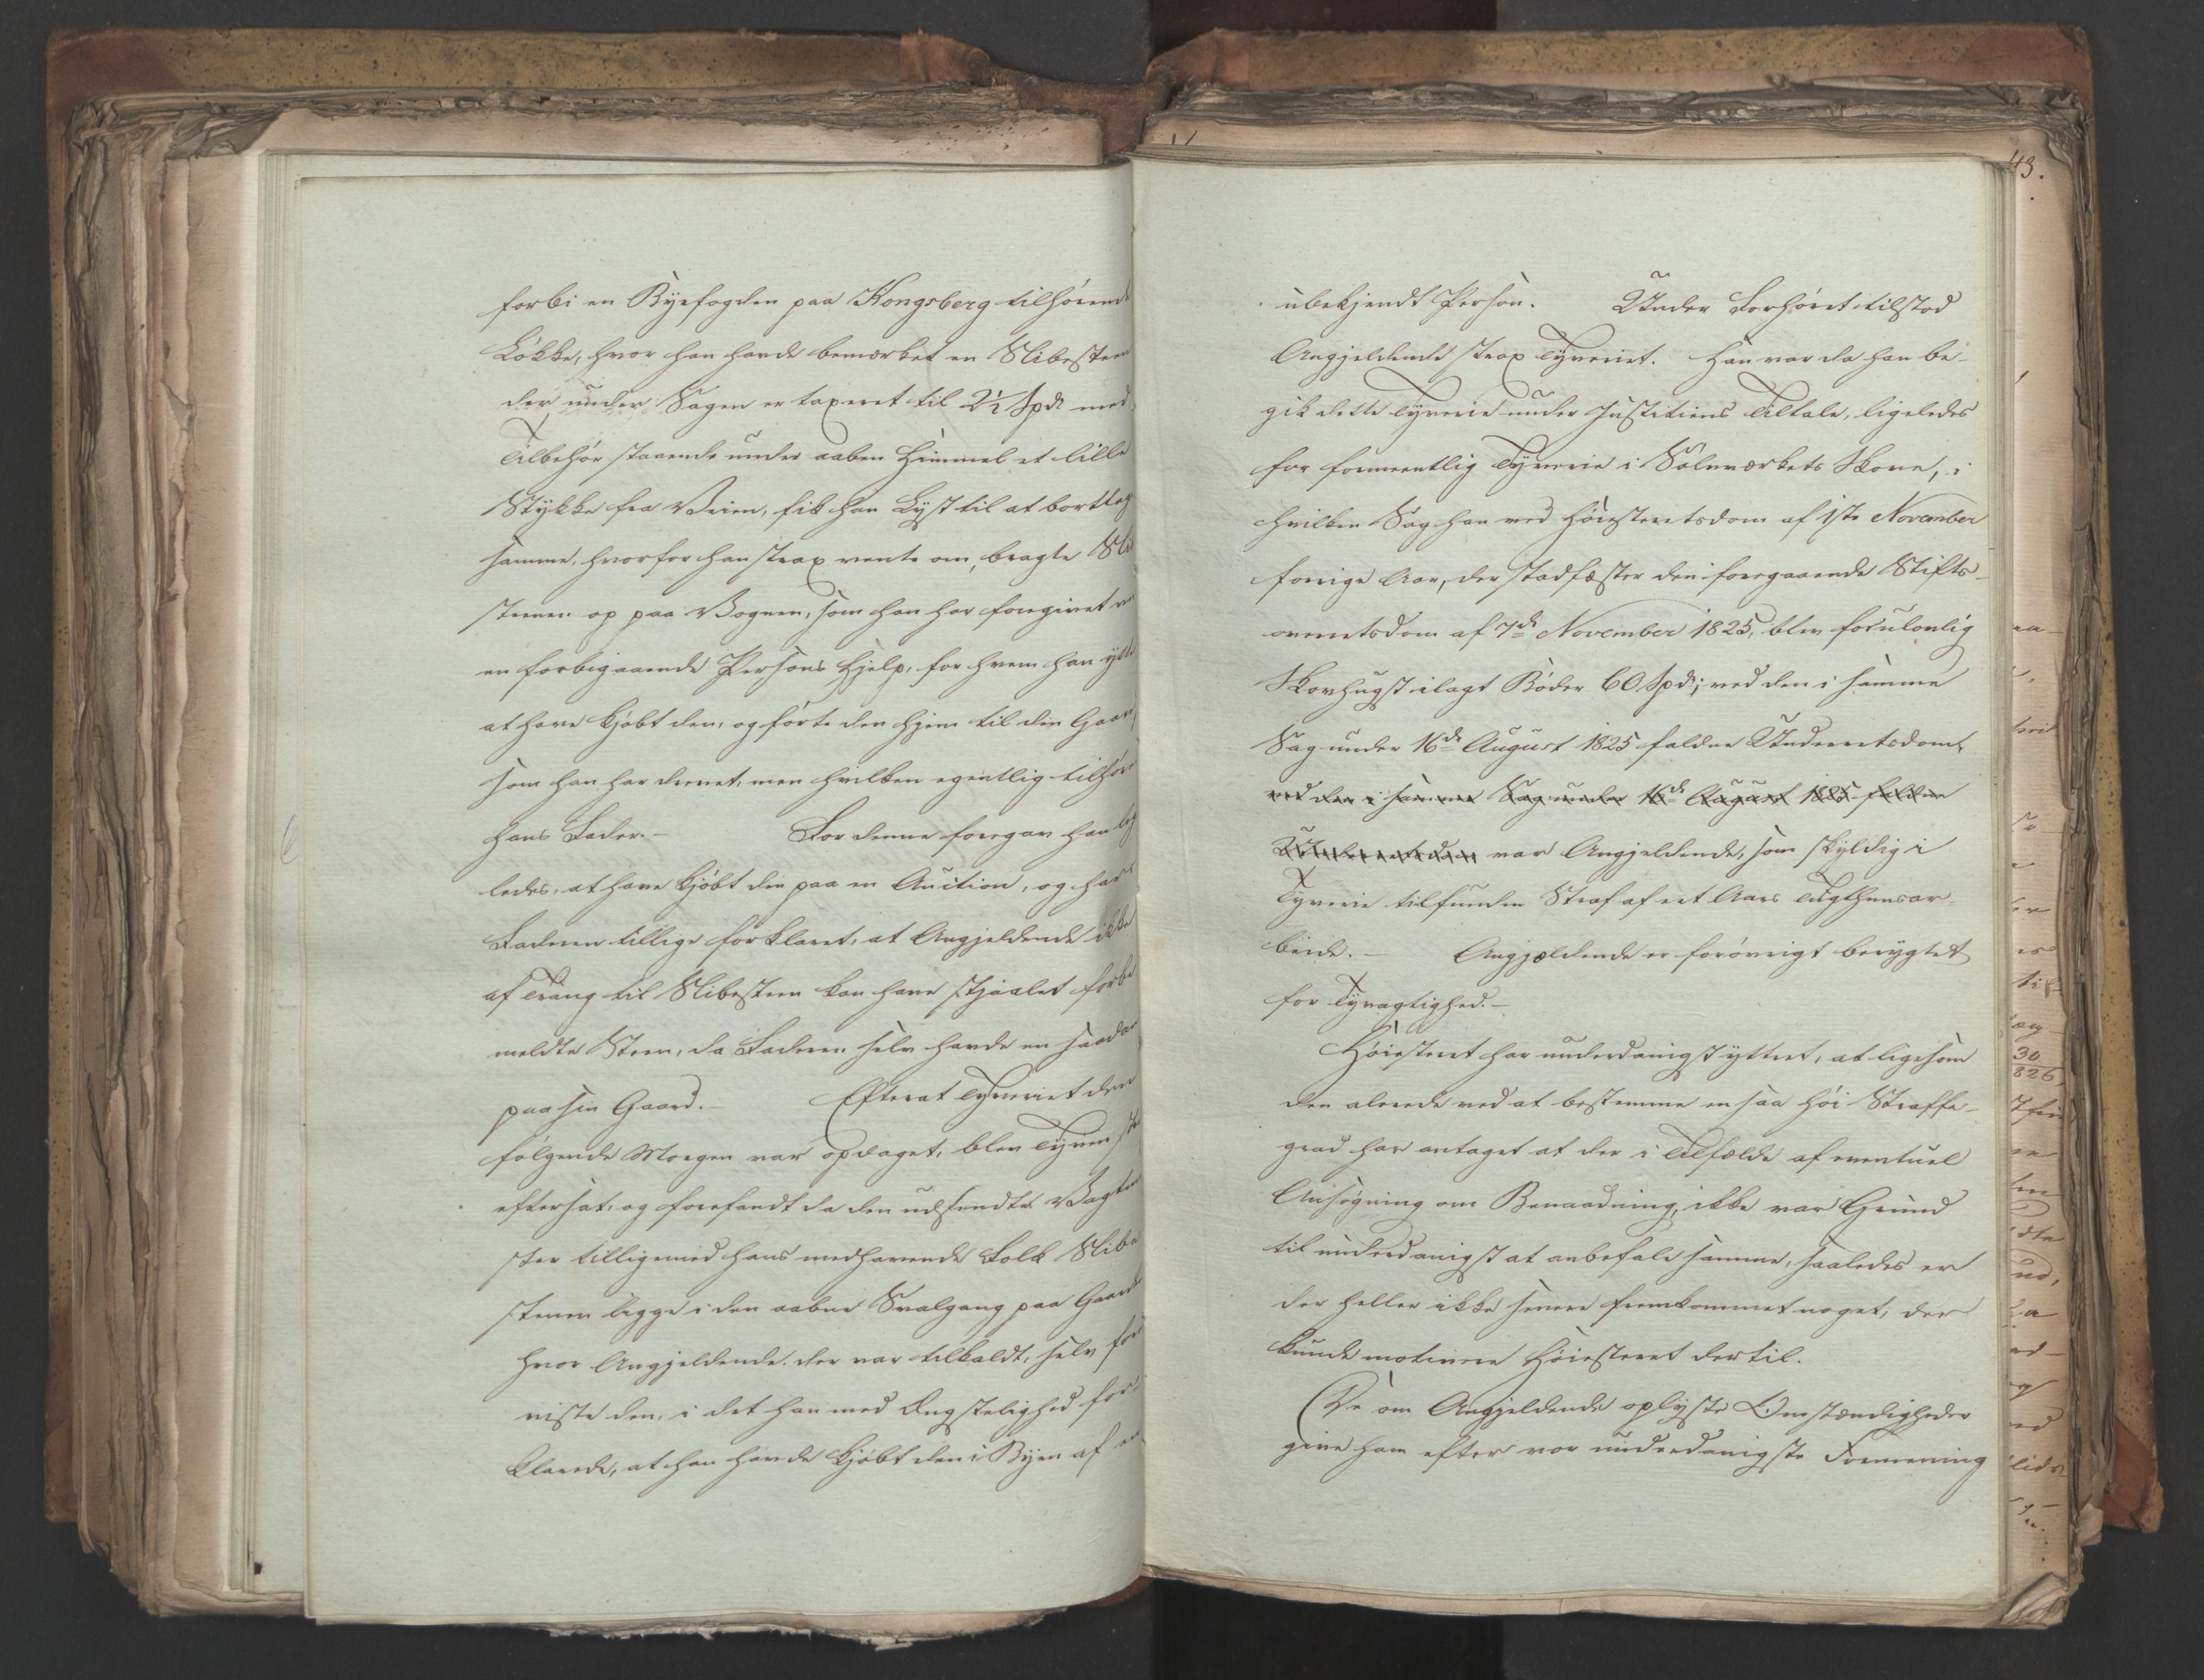 forbi en Byefogden paa Kongsberg tilhørende
Løkke, hvor han havde bemærket en Slibesteen
der under Sagen er taxeret til 2½ Spd med
Tilbehør staaende under aaben Himmel et lille
Stykke fra Veien, fik han Lyst til at borttag
samme, hvorfor han strax vente om, bragte Sli
steenen op paa Vognen, som han har foregivet ve
en forbigaaende Persons Hjelp, for hvem han ytte
at have kjøbt den, og førte den hjem til den Gaar
som han har drevet, men hvilken egentlig tilhøre
hans Fader. – For denne foregav han lig
ledes, at have kjøbt den paa en Auction, og har
Faderen tillige forklaret, at Angjeldende ikke
af Trang til Slibesteen kan have stjaalet forbe
meldte Steen, da Faderen selv havde en saadan
paa sin Gaard. – Efterat Tyveriet den
følgende Morgen var opdaget, blev Tyven str
eftersat, og forefandt da den udsendte Vagtme
ster tilligemed hans medhavende Folk Slibe
stenen ligge i den aabne Svalgang paa Gaarde
hvor Angjeldende, der var tilkaldt, selv fore
viste den, i det han med Ængstelighed for
klarede, at han havde kjøbt den i Byen af en
43.
ubekjendt Person. Under Forhøret tilstod
Angjeldende strax Tyveriet. Han var da han be-
gik dette Tyverie under Justitiens Tiltale, ligeledes
for formeentlig Tyverie i Sølvværkets Skove, i
hvilken Sag han ved Høiesteretsdom af 1ste November
forrige Aar, der stadfæster den foregaaende Stifts-
overretsdom af 7de November 1825, blev for ulovlig
Skovhugst ilagt Bøder 60 Spd; ved den i samme
Sag under 16de August 1825 faldne Underretsdom,
ved den i samme Sag under 16de August 1825 faldne
Underretsdom var Angjeldende, som skyldig i
Tyverie tilfunden Straf af eet Aars Tugthuusar-
beide. – Angjældende er forøvrigt berygtet
for Tyvagtighed. –
Høiesteret har underdanigst yttret, at ligesom
den alerede ved at bestemme en saa høi Straffe-
grad har antaget at der i Tilfælde af eventuel
Ansøgning om Benaadning, ikke var Grund
til underdanigst at anbefale samme, saaledes er
der heller ikke senere fremkommet noget, der
kunde motivere Høiesteret dertil.
De om Angjeldende oplyste Omstændigheder
give ham efter vor underdanigste Formening